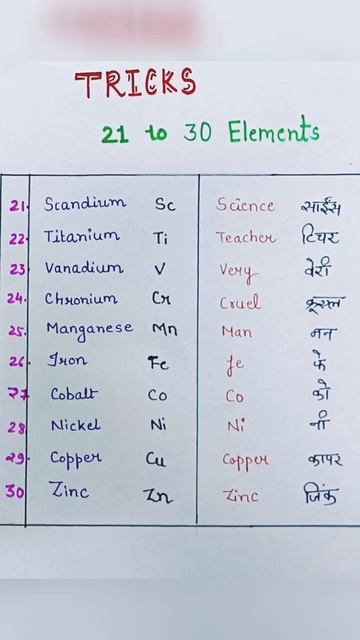 TRICKS
21 to 30 Elements
21. Scandium Sc Science साईंस
22. Titanium Ti Teacher टिचर
23 Vanadium V Very वेरी
24. Chronium Cr Cruel क्रूस्ल
25. Manganese Mn Man मन
26. Iron Fe fe फे
27 Cobalt Co Co को
28 Nickel Ni Ni नी
29. Copper Cu Copper कापर
30 Zinc Zn Zinc जिंक